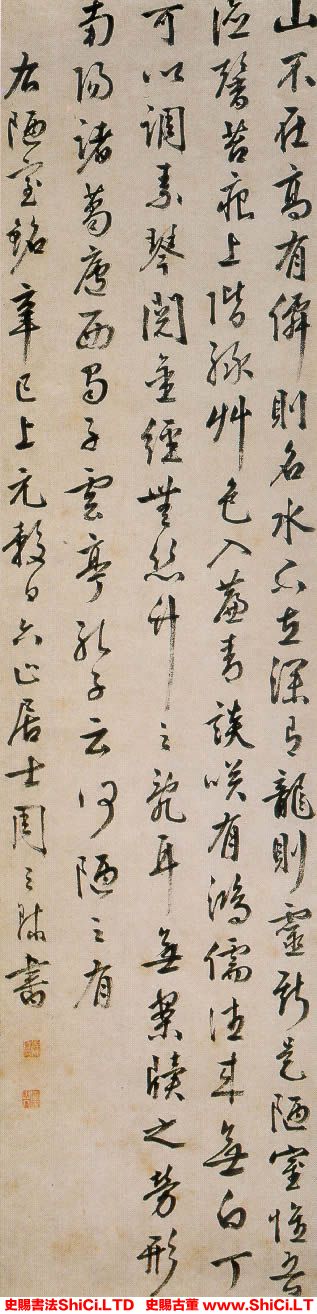 山不在高有僊則名水不在深有龍則靈斯是陋室惟吾
德馨苔痕上階綠艸色入簾青談咲有鴻儒往来無白丁
可以調素琴閱金經無絲竹之亂耳無案牘之勞形
南陽諸葛廬西蜀子雲亭孔子云何陋之有
右陋室銘辛巳上元穀日六止居士周之
書
史賜書法ShiCi.LTD 史賜古董 www.ShiCi.LT